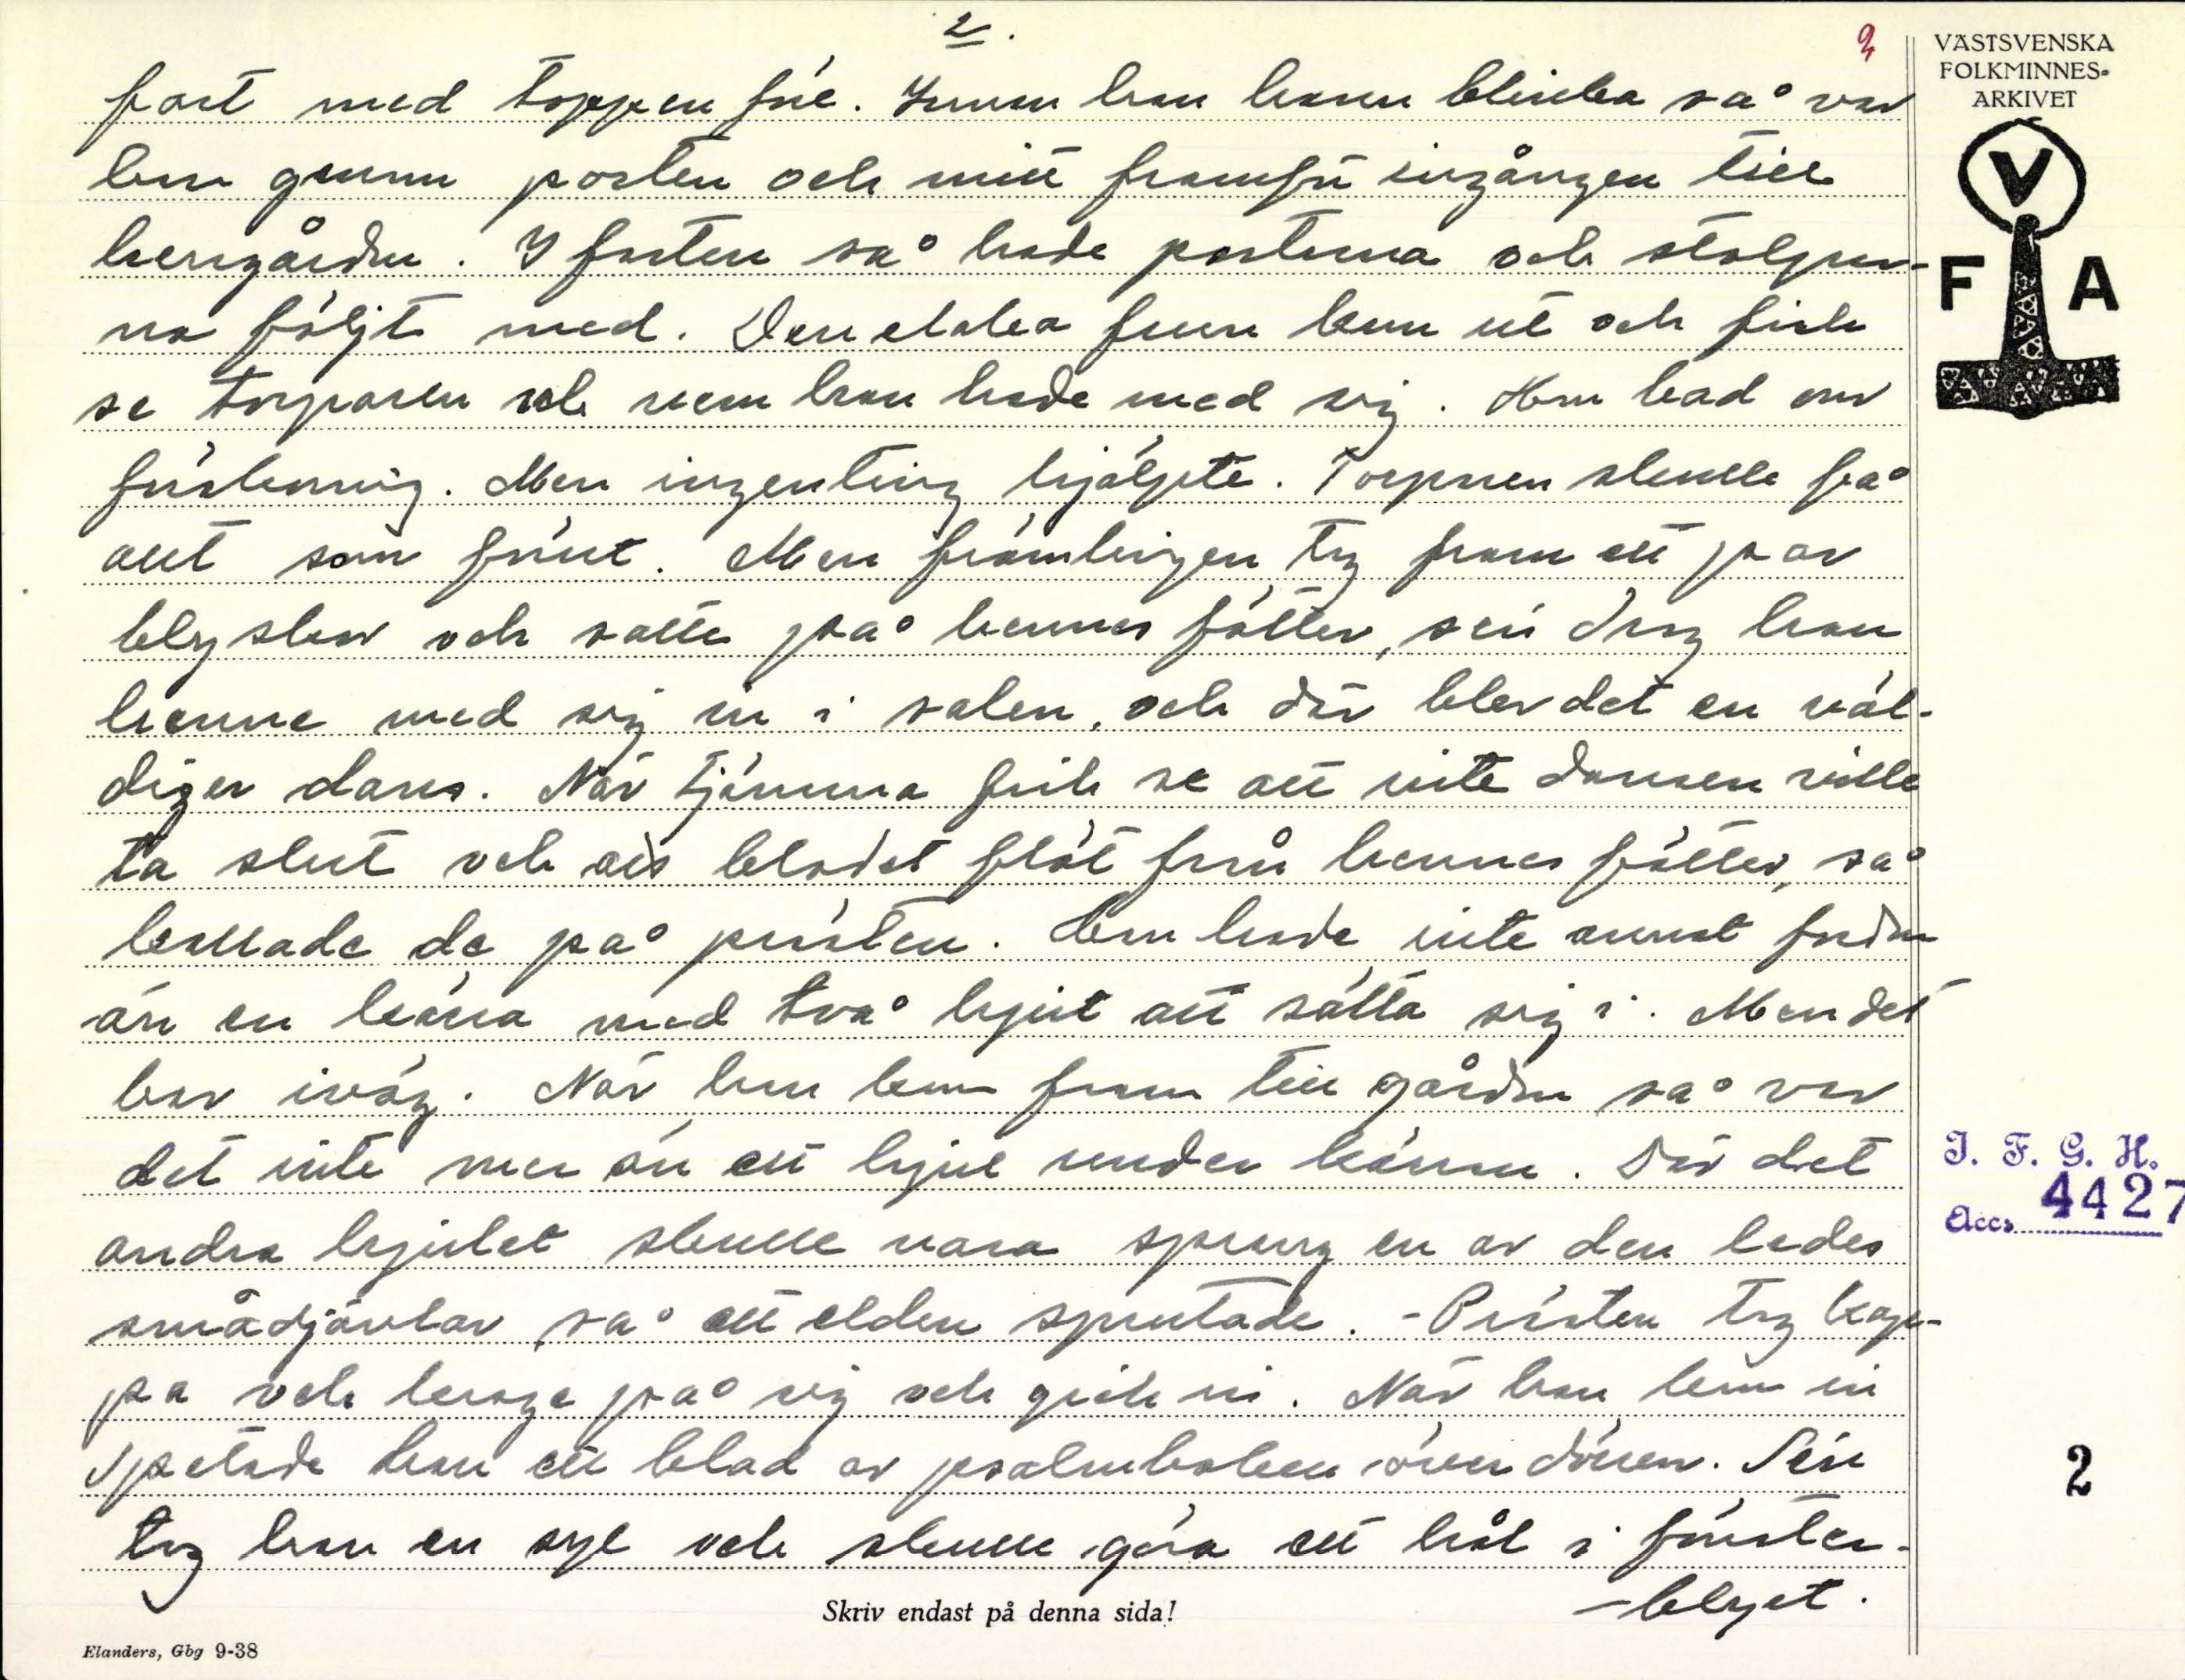 2.
2
VÄSTSVENSKA
FOLKMINNES-
ARKIVET
V
F A
fart med toppen före. Innan han hann blinka så var
han genom porten och mitt framför ingången till
herrgården. I farten så hade portarna och stolpar-
na följt med. Den elaka frun kom ut och fick
se torparen och vem han hade med sig. Hon bad om
förskoning. Men ingenting hjälpte. Torparen skulle få
allt som förut. Men främlingen tog fram ett par
blyskor och satte på hennes fötter, sen drog han
henne med sig in i salen, och där blev det en väl-
diger dans. När tjänarna fick se att inte dansen ville
ta slut och att blodet flöt från hennes fötter, så
kallade de på prästen. Han hade inte annat fordon
än en kärra med två hjul att sätta sig i. Men det
bar iväg. När han kom fram till gården så var
det inte mer än ett hjul under kärran. Där det
andra hjulet skulle vara sprang en av den ledes
smådjävlar så att elden sprutade. - Prästen tog kap-
pa och krage på sig och gick in. När han kom in
spetade han ett blad av psalmboken över dörren. Sen
tog han en syl och skulle göra ett hål i fönster-
-blyet.
I. F. G. H.
Acc. 4427
2
Skriv endast på denna sida!
Elanders, Gbg 9-38